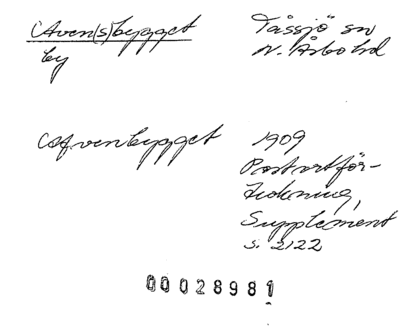 Aven(s)bygget Tåssjö sn
by N. Åsbo hd
Afvenbygget 1909
Postortför-
teckning,
Supplement
s. 2122
00028981